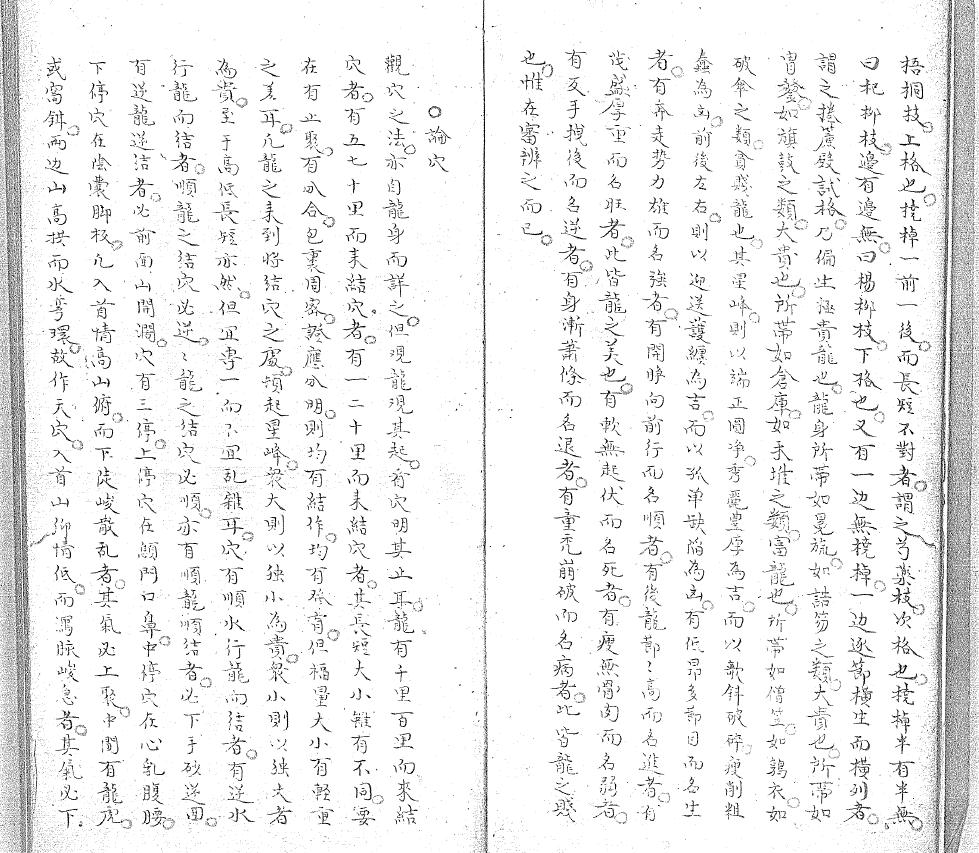 梧桐枝上格也撓掉一前一後而長短不對者謂之芍藥枝次格也撓掉半有半無
曰杞柳枝邊有邊無曰楊柳枝下格也又有一边無撓掉一边逐節橫生而橫列者
謂之捲簾殿試格乃偏生極貴龍也龍身所帶如冕旒如誥笏之類大貴也所帶如
冑鍪如旗鼓之類大貴也所帶如倉庫如禾堆之類富龍也所帶如僧笠如鶉衣如
破傘之類貧賤龍也其星峰則以端正圓净秀麗豊厚為吉而以欹斜破碎瘦削粗
蠢為凶前後左右則以迎送護纏為吉而以孤单缺陷為凶有低昂多節目而名生
者有奔走勢力雄而名強者有開睜向前行而名順者有後龍節〻高而名進者有
茂盛厚重而名旺者此皆龍之美也有軟無起伏而名死者有瘦無骨肉而名弱者
有反手拽後而名逆者有身漸蕭條而名退者有童禿崩破而名病者此皆龍之賤
也惟在審辨之而已
○論穴
觀穴之法亦自龍身而詳之但現龍現其起看穴明其止耳龍有千里百里而來結
穴者有五七十里而来結穴者有一二十里而来結穴者其長短大小雖有不同要
在有止聚有分合包裏周密證應分明則均有結作均有發育但福量大小有輕重
之差耳凡龍之来到將結穴之處頓起星峰衆大則以独小為貴衆小則以独大者
為貴至于高低長短亦然但宜專一而不宜乱雜耳穴有順水行龍而結者有逆水
行龍而結者順龍之结穴必逆〻龍之结穴必順亦有順龍順結者必下手砂逆囬
有逆龍逆洁者必前面山開濶穴有三停上停穴在顖門口鼻中停穴在心乳腹腰
下停穴在陰囊脚板凡入首情高山俯而下陡峻散乱者其氣必上聚中間有龍虎
或窩鉗两边山高拱而水弯環故作天穴入首山仰情低而瀉脉峻急者其氣必下